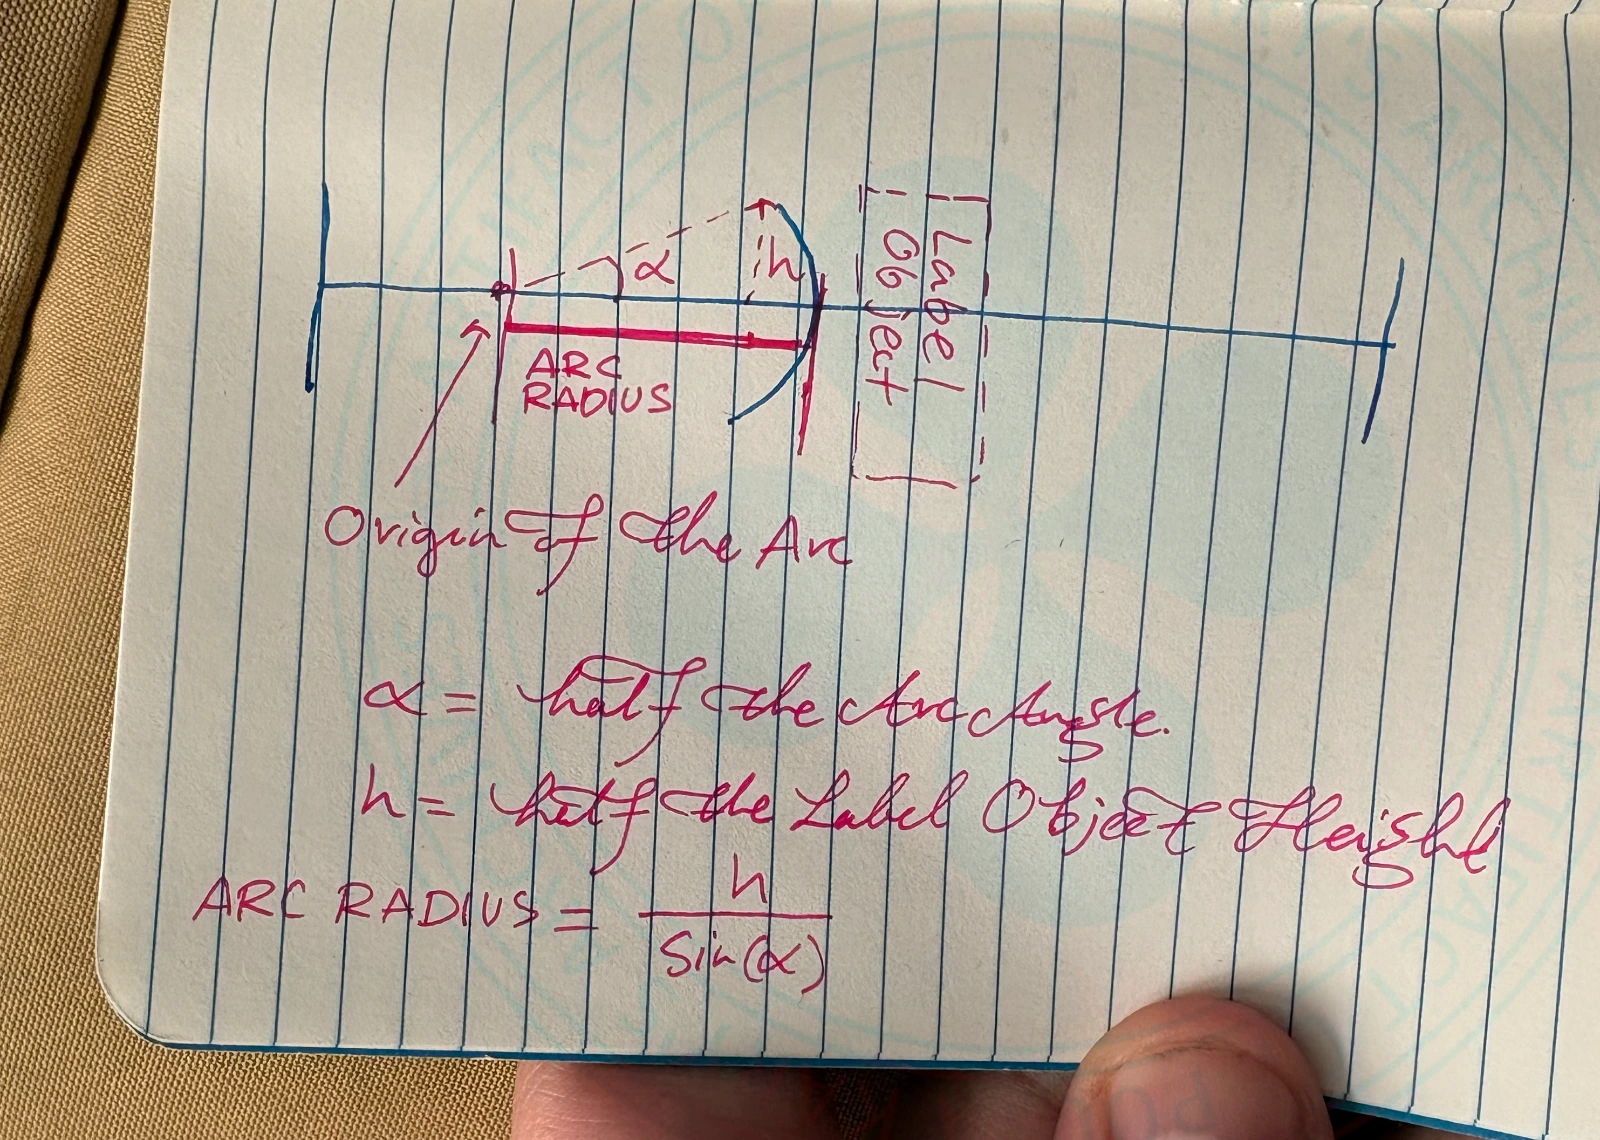 α
h
Label
Object
ARC
RADIUS
Origin of the Arc
α = half the Arc Angle.
h = half the Label Object Height
ARC RADIUS = h / Sin(α)